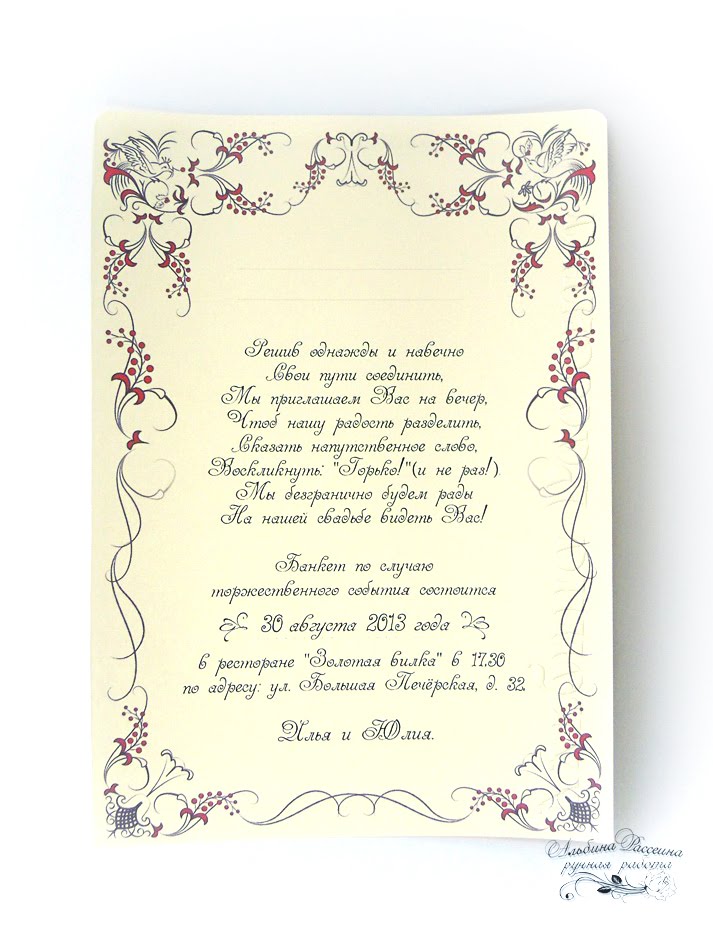 Решив однажды и навечно
Свои пути соединить,
Мы приглашаем Вас на вечер,
Чтоб нашу радость разделить,
Сказать напутственное слово,
Воскликнуть: "Горько!"(и не раз!).
Мы безгранично будем рады
На нашей свадьбе видеть Вас!
Банкет по случаю
торжественного события состоится
30 августа 2013 года
в ресторане "Золотая вилка" в 17.30
по адресу: ул. Большая Печёрская, д. 32.
Илья и Юлия.
Альбина Рассеина
ручная работа